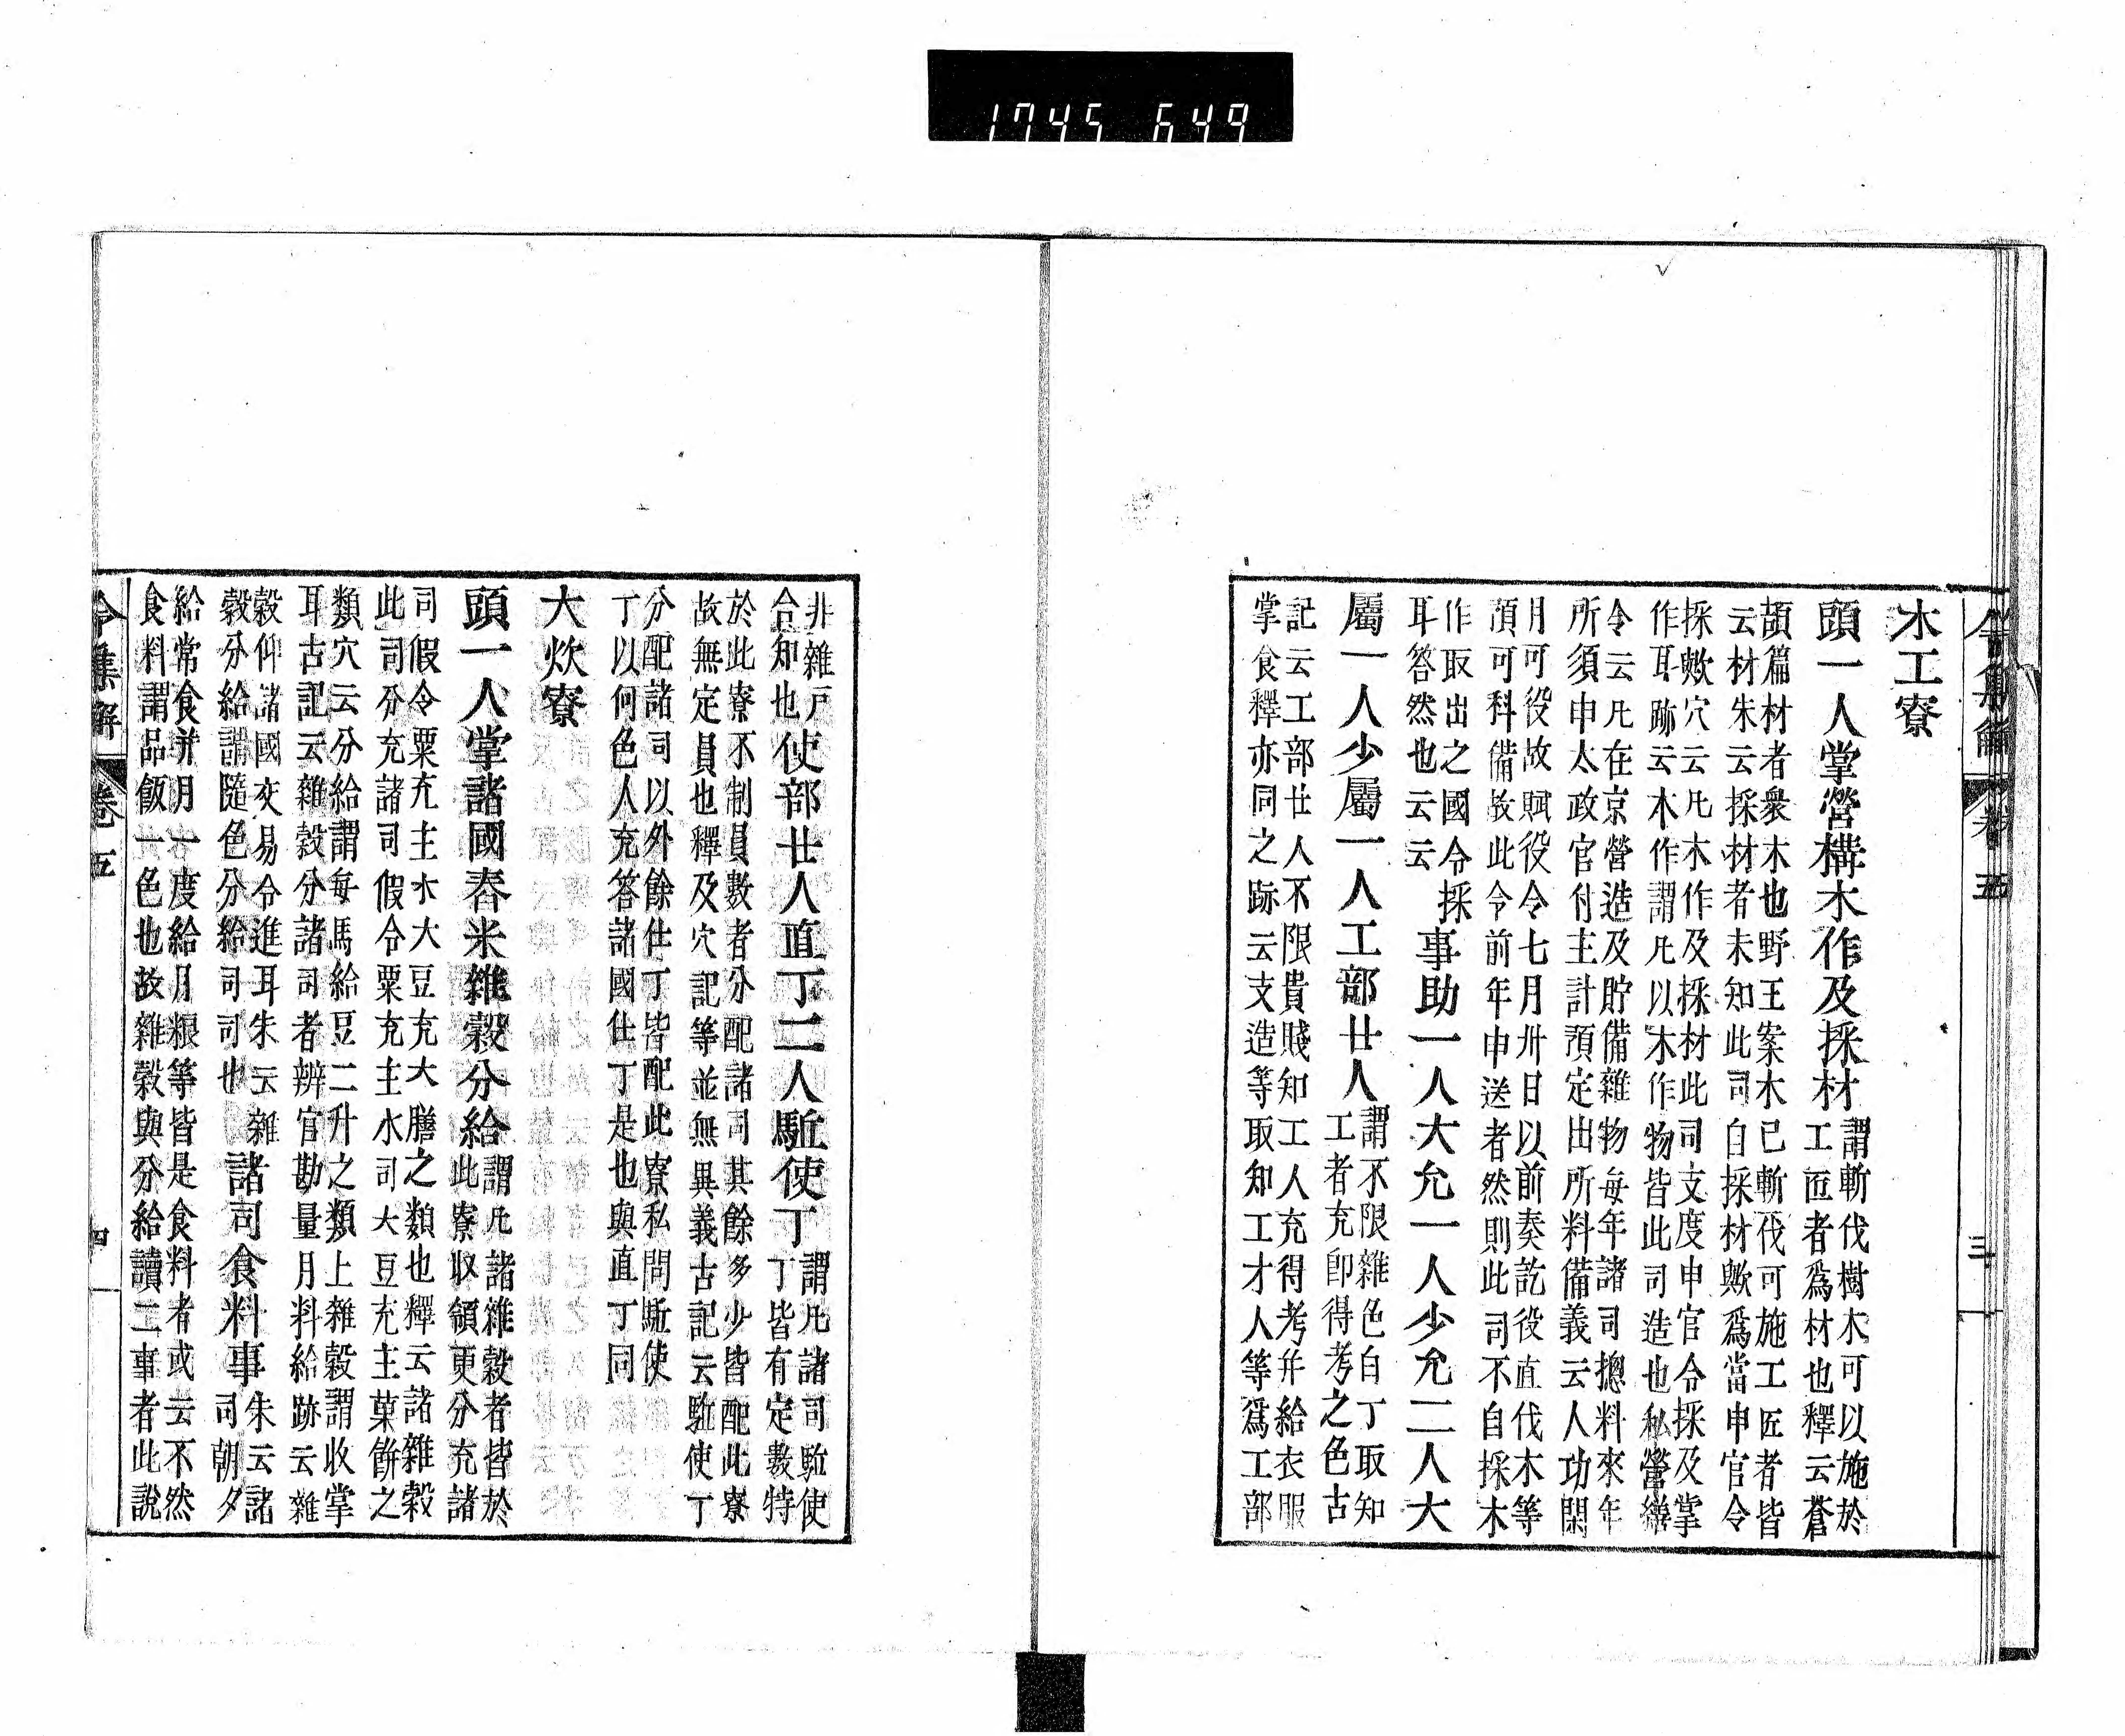 1745 649
木工寮
頭一人掌營構木作及採材謂斬伐樹木可以施於
工匠者爲材也釋云蒼
頡篇材者衆木也野王案木已斬伐可施工匠者皆
云材朱云採材者未知此司自採材歟爲當申官令
採歟穴云凡木作及採材此司支度申官令採及掌
作耳跡云木作謂凡以木作物皆此司造也私營繕
令云凡在京營造及貯備雜物每年諸司摠料來年
所須申太政官付主計預定出所料備義云人功閑
月可役故賦役令七月卅日以前奏訖役直伐木等
預可科備故此令前年申送者然則此司不自採木
作取出之國令採
耳答然也云云事助一人大允一人少允二人大
屬一人少屬一人工部廿人謂不限雜色白丁取知
工者充卽得考之色古
記云工部廿人不限貴賤知工人充得考并給衣服
掌食釋亦同之跡云支造等取知工才人等爲工部
卷五
三
非雜戸
合知也使部廿人直丁二人駈使丁謂凡諸司駈使
丁皆有定數特
於此寮不制員數者分配諸司其餘多少皆配此寮
故無定員也釋及穴記等並無異義古記云駈使丁
分配諸司以外餘仕丁皆配此寮私問駈使
丁以何色人充答諸國仕丁是也與直丁同
大炊寮
頭一人掌諸國舂米雜穀分給謂凡諸雜穀者皆於
此寮收領更分充諸
司假令粟充主水大豆充大膳之類也釋云諸雜穀
此司分充諸司假令粟充主水司大豆充主菓餅之
類穴云分給謂每馬給豆二升之類上雜穀謂收掌
耳古記云雜穀分諸司者辨官勘量月料給跡云雜
穀仰諸國交易令進耳朱云雜
穀分給謂隨色分給司司也諸司食料事朱云諸
司朝夕
給常食并月一度給月粮等皆是食料者或云不然
食料謂品飯一色也故雜穀與分給讀二事者此說
令集解
卷五
四